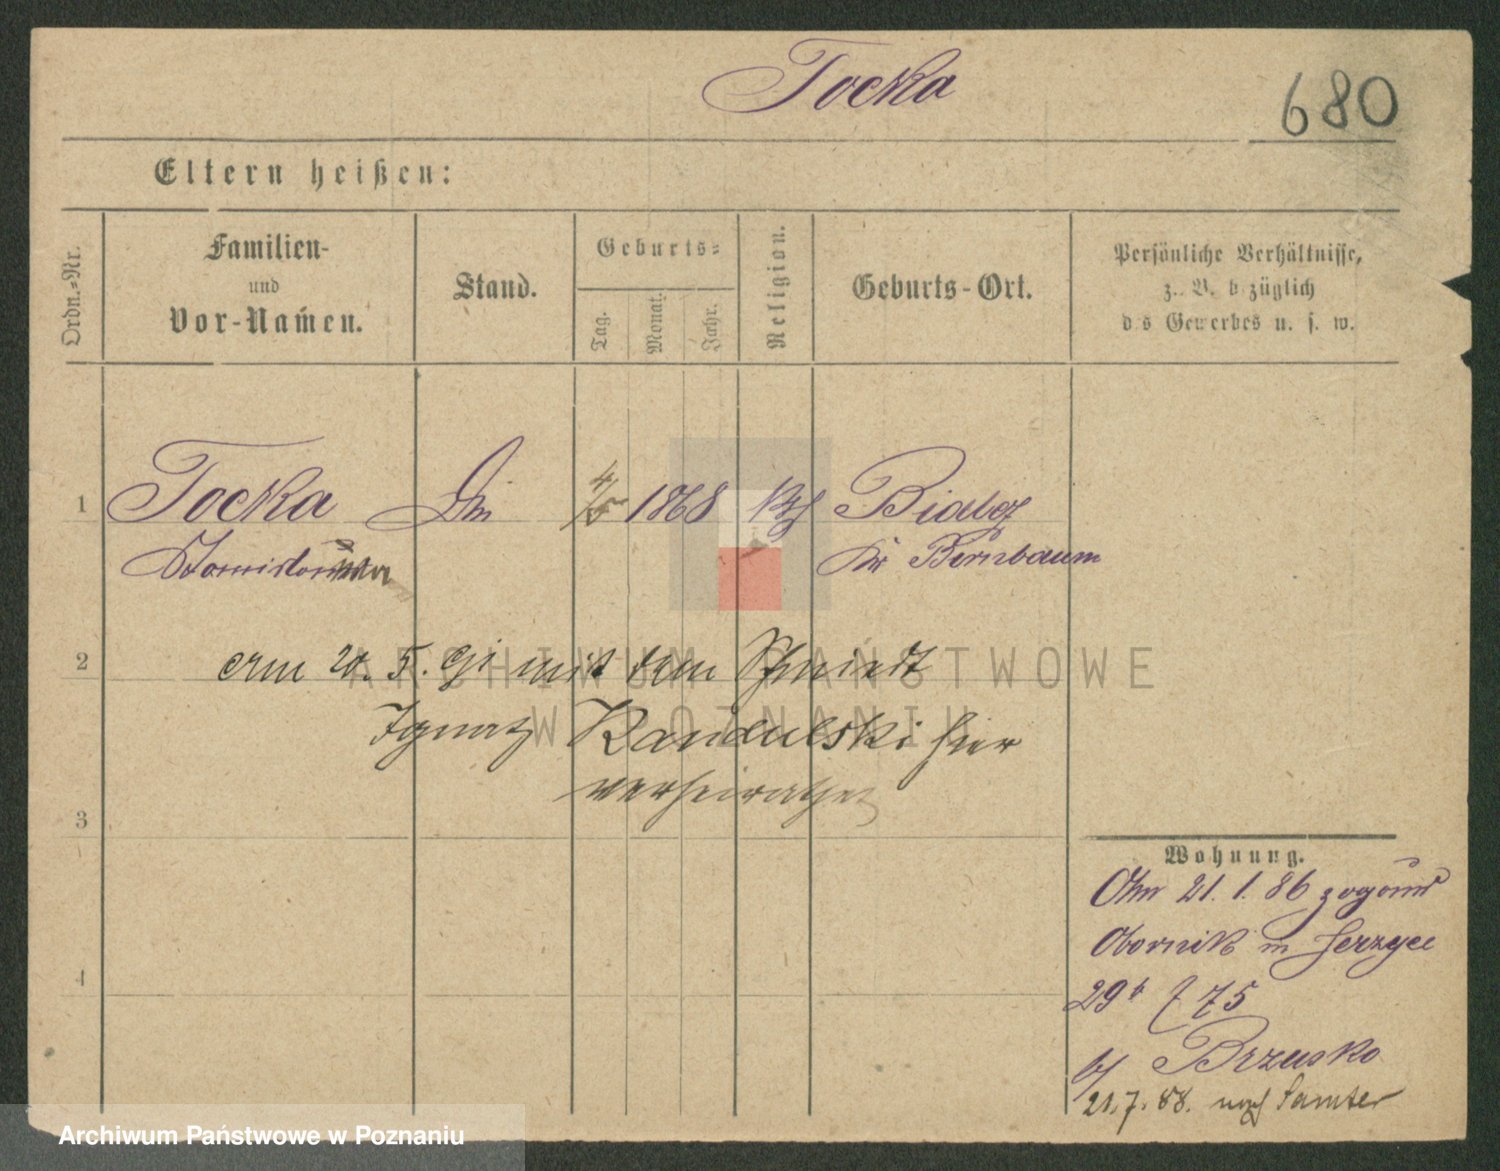 Tocka
680
Eltern heißen:
Ordn.-Nr.
Familien-
und
Vor-Namen.
Stand.
Geburts-
Tag.
Monat.
Jahr.
Religion.
Geburts-Ort.
Persönliche Verhältnisse,
z. B. bezüglich
des Gewerbes u. s. w.
1
Tocka
4/5 1868
kth
Kr Birnbaum
2
20. 5. 91 mit dem Schmiedt
Ignatz Kandulski hier
verheirathet
3
Wohnung.
21. 1. 86 zog aus
Obornik n Jerzyce
29 f 75
b/ Brzusko
21. 7. 88. nach Samter
4
ARCHIWUM PAŃSTWOWE
W POZNANIU
Archiwum Państwowe w Poznaniu